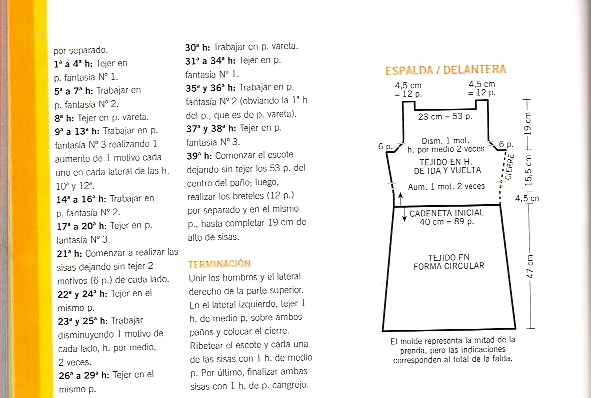 por separado.
1ª a 4ª h: Tejer en
p. fantasía Nº 1.
5ª a 7ª h: Trabajar en
p. fantasía Nº 2.
8ª h: Tejer en p. vareta.
9ª a 13ª h: Trabajar en p.
fantasía Nº 3 realizando 1
aumento de 1 motivo cada
uno en cada lateral de las h.
10ª y 12ª.
14ª a 16ª h: Trabajar en
p. fantasía Nº 2.
17ª a 20ª h: Tejer en p.
fantasía Nº 3.
21ª h: Comenzar a realizar las
sisas dejando sin tejer 2
motivos (6 p.) de cada lado.
22ª y 24ª h: Tejer en el
mismo p.
23ª y 25ª h: Trabajar
disminuyendo 1 motivo de
cada lado, h. por medio,
2 veces.
26ª a 29ª h: Tejer en el
mismo p.
30ª h: Trabajar en p. vareta.
31ª a 34ª h: Tejer en p.
fantasía Nº 1.
35ª y 36ª h: Trabajar en p.
fantasía Nº 2 (obviando la 1ª h
del p., que es de p. vareta).
37ª y 38ª h: Tejer en p.
fantasía Nº 3.
39ª h: Comenzar el escote
dejando sin tejer los 53 p. del
centro del paño; luego,
realizar los breteles (12 p.)
por separado y en el mismo
p., hasta completar 19 cm de
alto de sisas.
TERMINACIÓN
Unir los hombros y el lateral
derecho de la parte superior.
En el lateral izquierdo, tejer 1
h. de medio p. sobre ambos
paños y colocar el cierre.
Ribetear el escote y cada una
de las sisas con 1 h. de medio
p. Por último, finalizar ambas
sisas con 1 h. de p. cangrejo.
ESPALDA / DELANTERA
4,5 cm
= 12 p.
4,5 cm
= 12 p.
23 cm = 53 p.
19 cm
6 p.
Dism. 1 mol.
h. por medio 2 veces
6 p.
TEJIDO EN H.
DE IDA Y VUELTA
CIERRE
15,5 cm
Aum. 1 mol. 2 veces
4,5 cm
CADENETA INICIAL
40 cm = 89 p.
TEJIDO EN
FORMA CIRCULAR
47 cm
El molde representa la mitad de la
prenda, pero las indicaciones
corresponden al total de la falda.